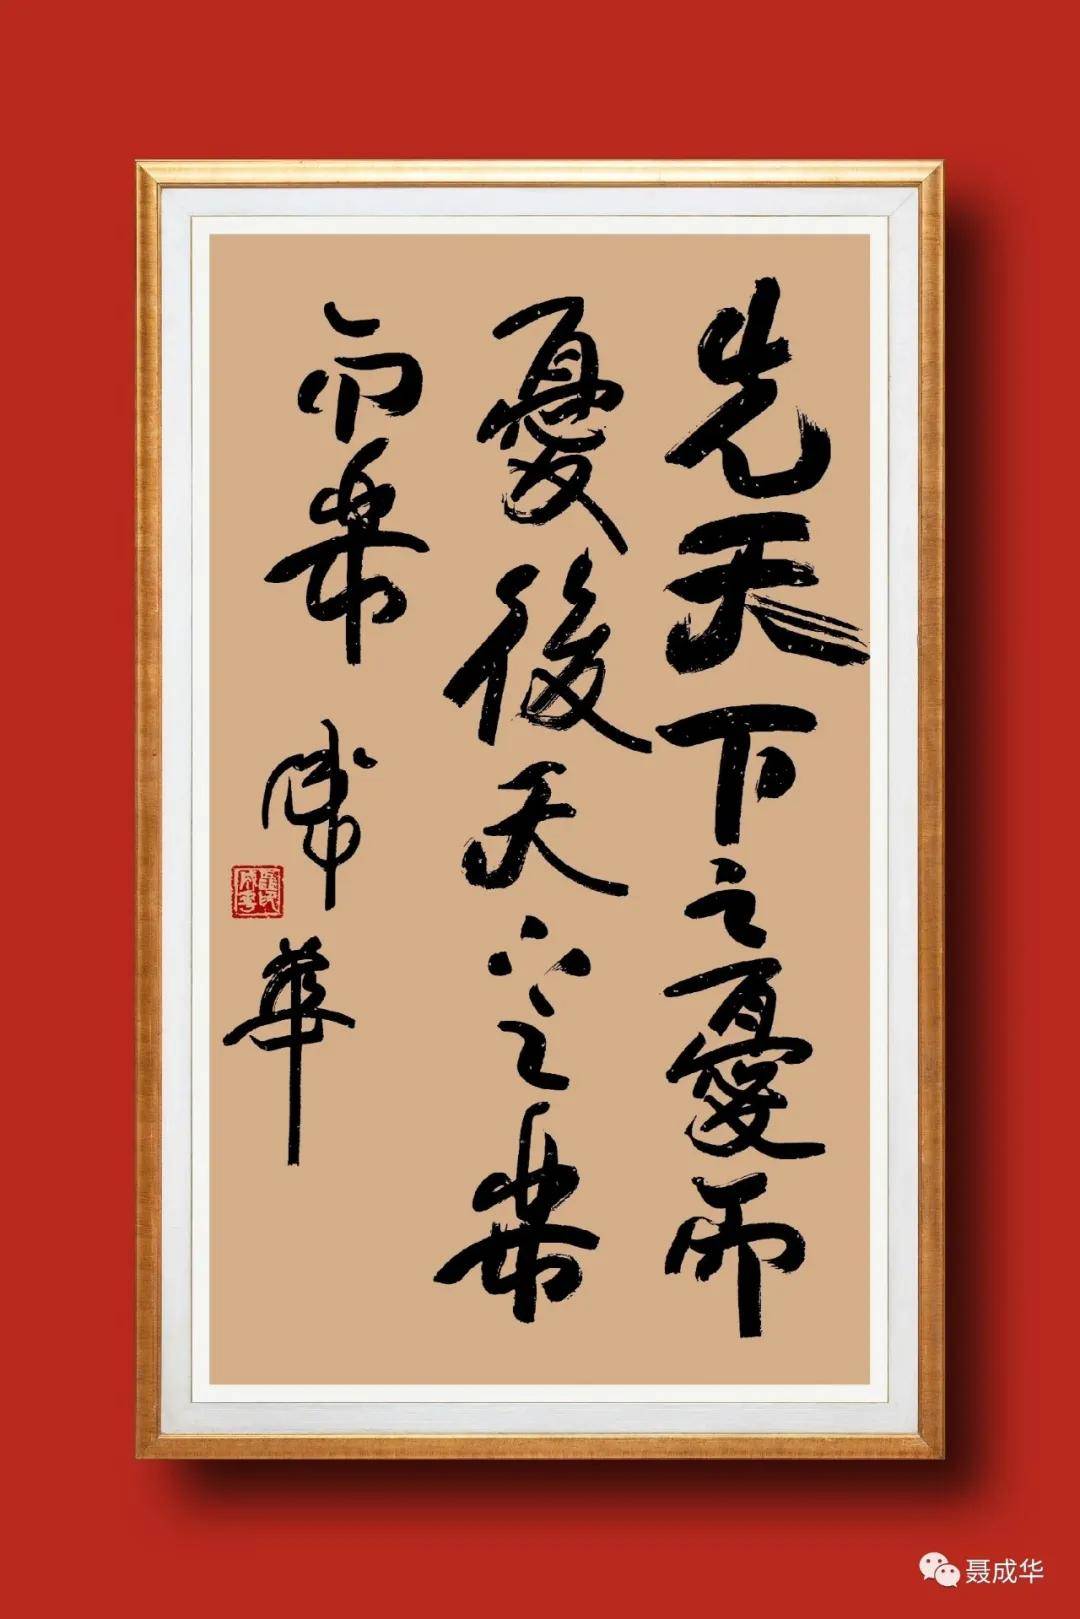 先天下之憂而
憂後天下之樂
而樂
華
聂成华